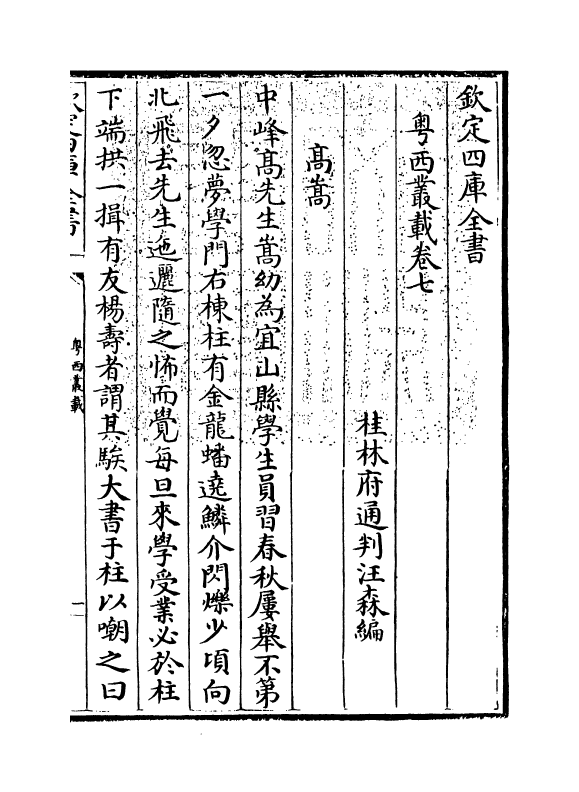 欽定四庫全書
粤西叢載卷七
桂林府通判汪森編
高嵩
中峰髙先生嵩幼為宜山縣學生員習春秋屢舉不第
一夕忽夢學門右棟柱有金龍蟠遶鱗介閃爍少頃向
北飛去先生迤邐隨之怖而覺每旦來學受業必於柱
下端拱一揖有友楊壽者謂其騃大書于柱以嘲之曰
欽定四庫全書
粤西叢載
一